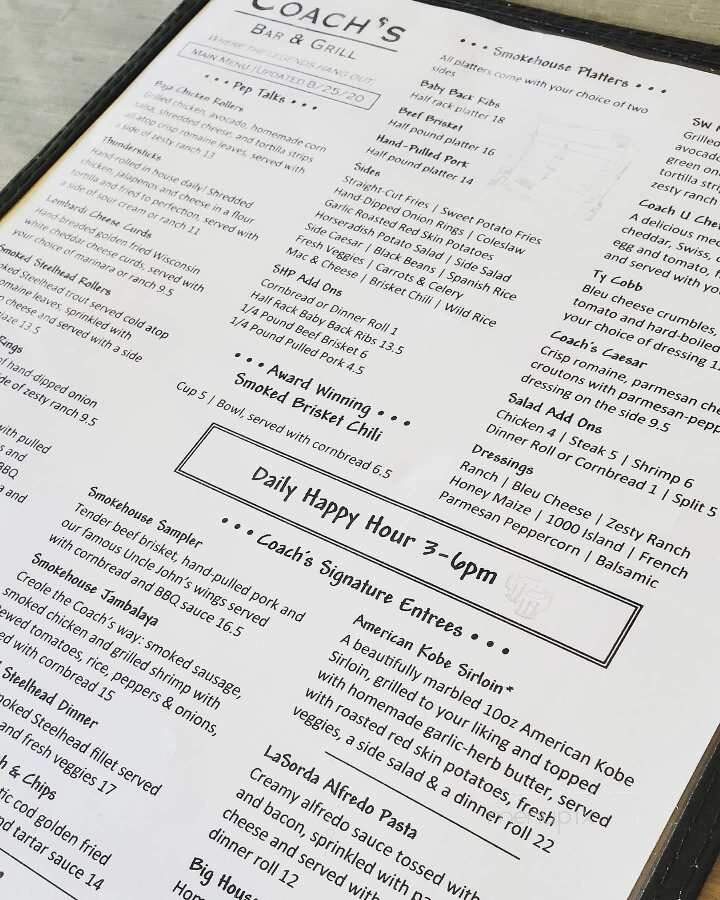 COACH'S
BAR & GRILL
WHERE THE LEGENDS HANG OUT
MAIN MENU (UPDATED 8/25/20
• • • Pep Talks • • •
Grilled chicken, avocado, homemade corn
salsa, shredded cheese, and tortilla strips
all atop crisp romaine leaves, served with
a side of zesty ranch 13
Thundersticks
Hand rolled in house daily! Shredded
chicken, jalapenos and cheese in a flour
tortilla and fried to perfection, served with
a side of sour cream or ranch 11
Lombardi Cheese Curds
Hand-breaded golden fried Wisconsin
white cheddar cheese curds, served with
your choice of marinara or ranch 9.5
Smoked Steelhead Rollers
Smoked Steelhead trout served cold atop
romaine leaves, sprinkled with
cheese and served with a side
13.5
of hand-dipped onion
side of zesty ranch 9.5
with pulled
and
BBQ
and
• • • Smokehouse Platters • • •
All platters come with your choice of two
sides
Baby Back Ribs
Half rack platter 18
Beef Brisket
Half pound platter 16
Hand-Pulled Pork
Half pound platter 14
Sides
Straight-Cut Fries | Sweet Potato Fries
Hand-Dipped Onion Rings | Coleslaw
Garlic Roasted Red Skin Potatoes
Horseradish Potato Salad | Side Salad
Side Caesar | Black Beans | Spanish Rice
Fresh Veggies | Carrots & Celery
Mac & Cheese | Brisket Chili | Wild Rice
SHP Add Ons
Cornbread or Dinner Roll 1
Half Rack Baby Back Ribs 13.5
1/4 Pound Beef Brisket 6
1/4 Pound Pulled Pork 4.5
• • • Award Winning • • •
Smoked Brisket Chili
Cup 5 | Bowl, served with cornbread 6.5
SW
Grilled
avocado
green on
tortilla str
zesty ranch
Coach U Che
A delicious me
cheddar, Swiss, c
egg and tomato,
and served with yo
Ty Cobb
Bleu cheese crumbles,
tomato and hard-boiled
your choice of dressing 1
Coach's Caesar
Crisp romaine, parmesan che
croutons with parmesan-pepp
dressing on the side 9.5
Salad Add Ons
Chicken 4 | Steak 5 | Shrimp 6
Dinner Roll or Cornbread 1 | Split 5
Dressings
Ranch | Bleu Cheese | Zesty Ranch
Honey Maize | 1000 Island | French
Parmesan Peppercorn | Balsamic
Daily Happy Hour 3-6pm
• • • Coach's Signature Entrees • • •
Smokehouse Sampler
Tender beef brisket, hand-pulled pork and
our famous Uncle John's wings served
with cornbread and BBQ sauce 16.5
Smokehouse Jambalaya
Creole the Coach's way: smoked sausage,
smoked chicken and grilled shrimp with
stewed tomatoes, rice, peppers & onions,
served with cornbread 15
Steelhead Dinner
Smoked Steelhead fillet served
and fresh veggies 17
& Chips
cod golden fried
and tartar sauce 14
American Kobe Sirloin*
A beautifully marbled 10oz American Kobe
Sirloin, grilled to your liking and topped
with homemade garlic-herb butter, served
with roasted red skin potatoes, fresh
veggies, a side salad & a dinner roll 22
LaSorda Alfredo Pasta
Creamy alfredo sauce tossed with
and bacon, sprinkled with pa
cheese and served with
dinner roll 12
Big Hous
Hom